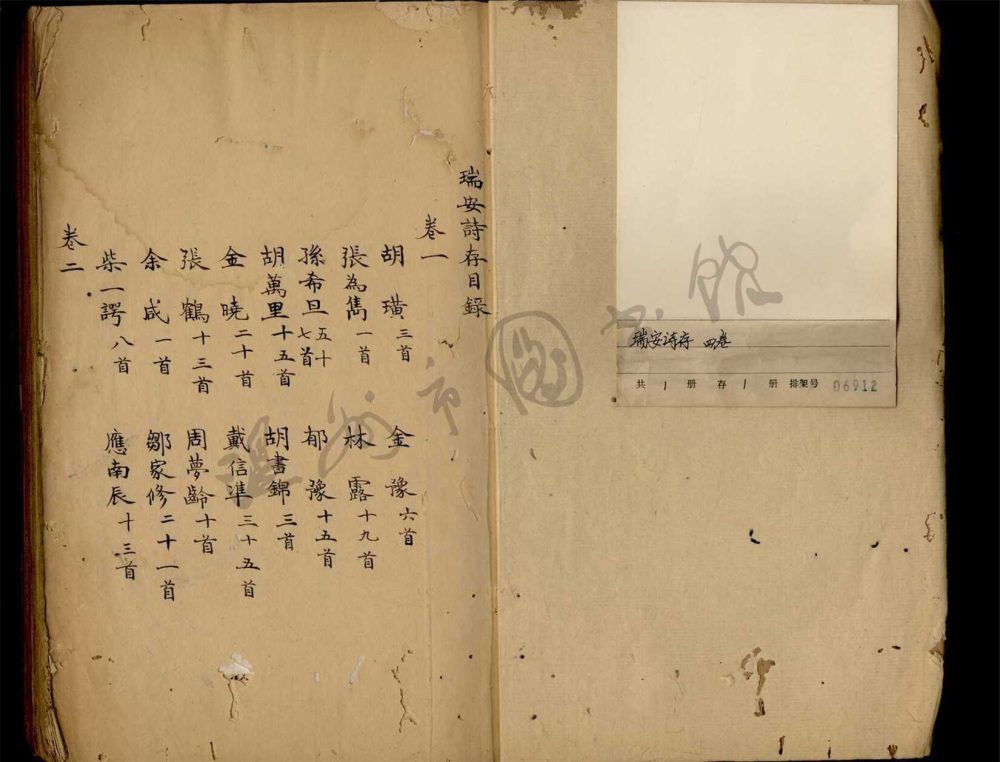 瑞安诗存 四卷
共 1 册 存 1 册 排架号 06912
瑞安詩存目錄
卷一
胡璜三首 金豫六首
張為雋一首 林露十九首
孫希旦五十七首 郁豫十五首
胡萬里十五首 胡書錦三首
金曉二十首 戴信準三十五首
張鶴十三首 周夢齡十首
余咸一首 鄒家修二十一首
柴一諤八首 應南辰十三首
卷二
温州市圖书館